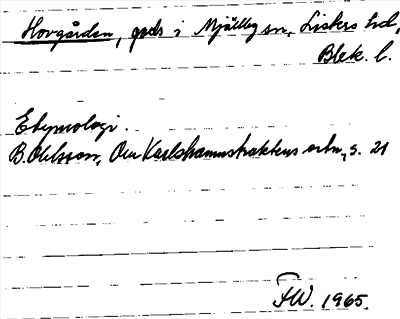 Hovgården, gods i Mjällby sn, Listers hd,
Blek. l.
Etymologi.
B. Ohlsson, Om Karlshamnstraktens ortn., s. 21
FW. 1965.